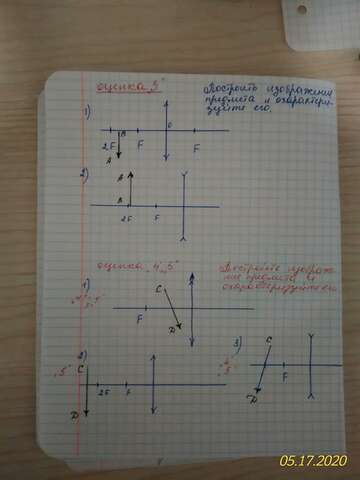 оценка „3"
Построить изображение
предмета и охарактери-
зуйте его.
1)
2F
B
F
O
F
A
2)
A
B
2F
F
оценка „4", „5"
Построить изображе-
ние предмета и
охарактеризуйте его.
1)
„4"
C
F
D
2)
„5"
C
2F
F
D
3)
C
F
D
05.17.2020